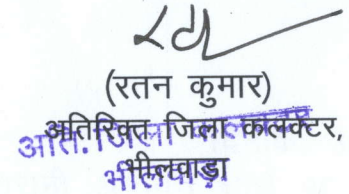 (रतन कुमार)
अतिरिक्त जिला कलक्टर,
भीलवाड़ा
अति. जिला कलक्टर
भीलवाड़ा